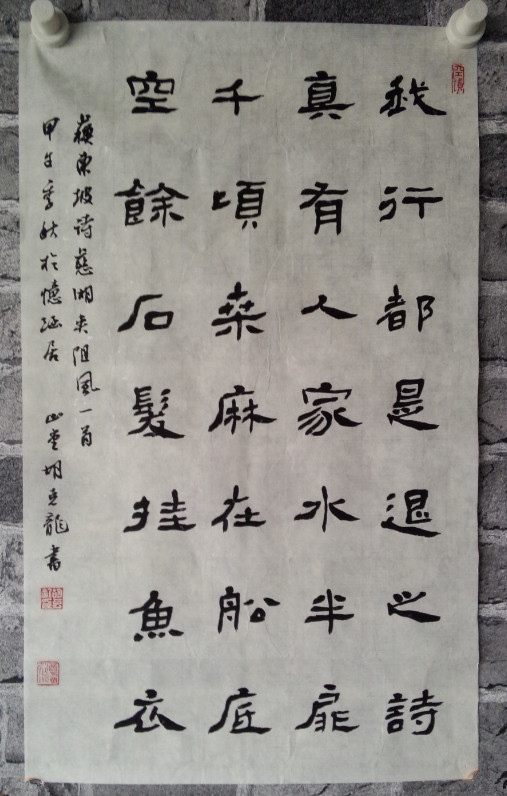 我行都是退之詩
真有人家水半扉
千頃桑麻在船底
空餘石髮挂魚衣
蘇東坡诗慈湖夾阻風一首
甲午季秋於憶居 山堂胡龍書